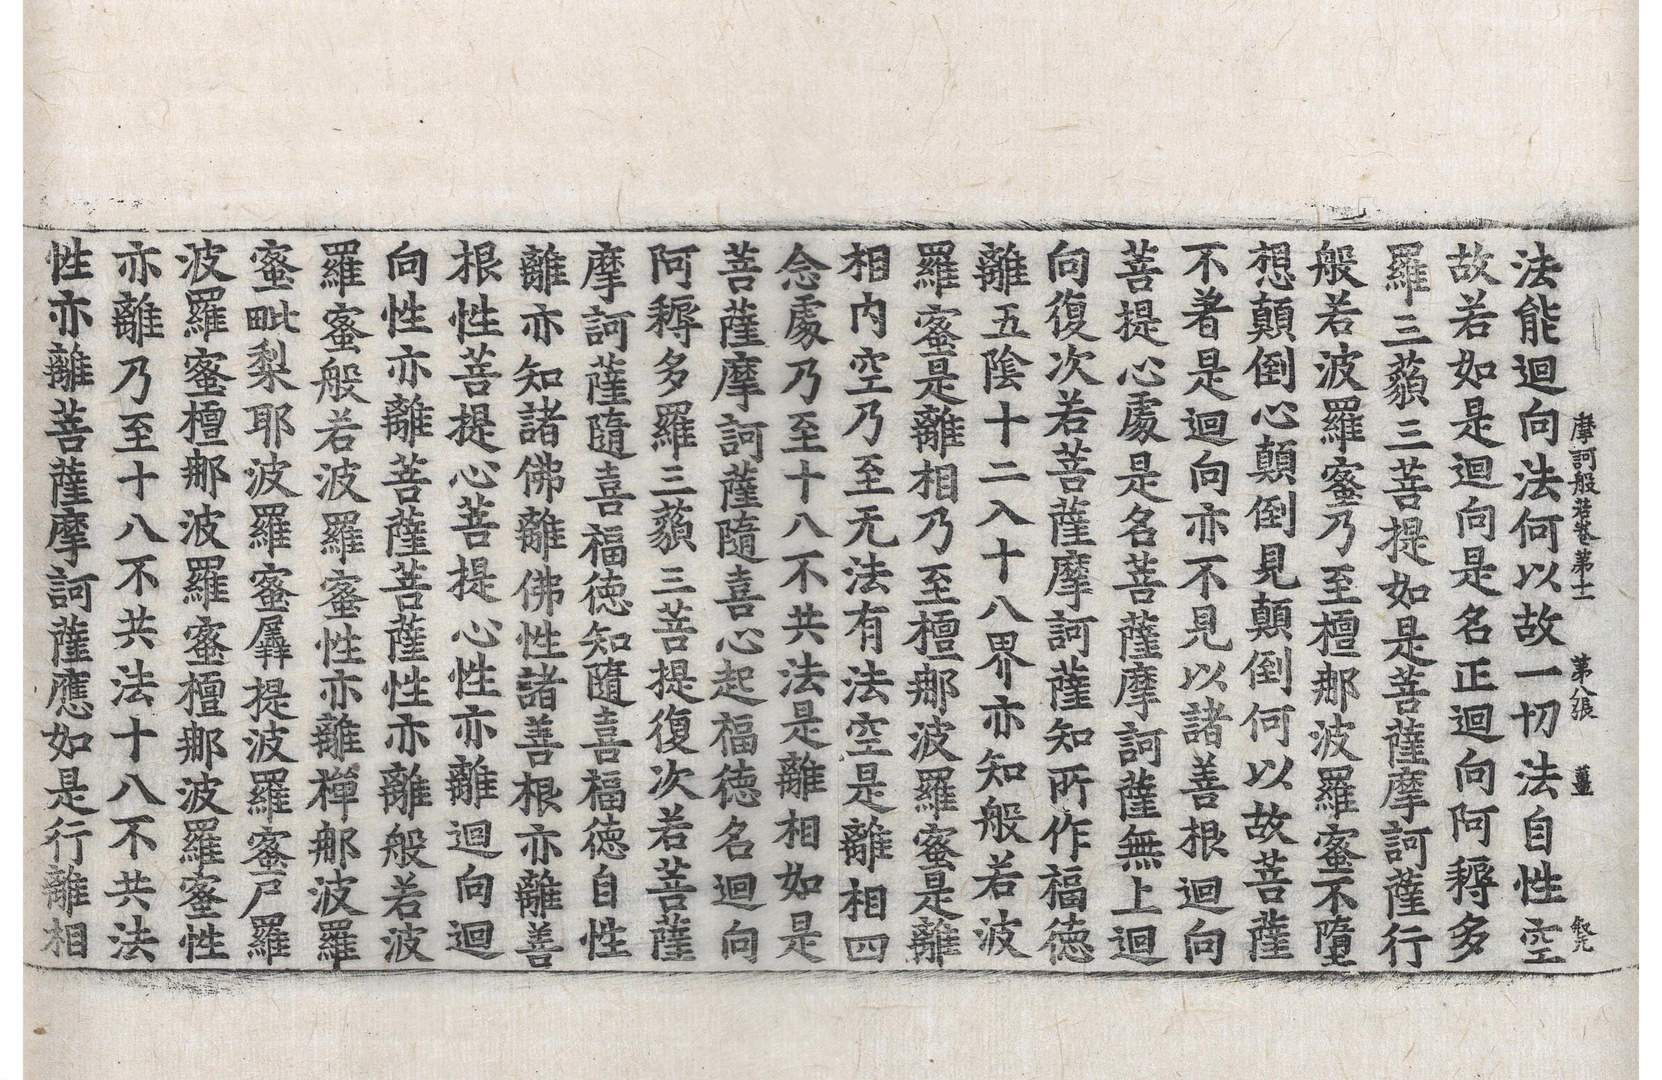 摩訶般若卷苐十一 苐八張 薑
法能迴向法何以故一切法自性空
故若如是迴向是名正迴向阿耨多
羅三藐三菩提如是菩薩摩訶薩行
般若波羅蜜乃至檀那波羅蜜不墮
想顛倒心顛倒見顛倒何以故菩薩
不著是迴向亦不見以諸善根迴向
菩提心處是名菩薩摩訶薩無上迴
向復次若菩薩摩訶薩知所作福德
離五陰十二入十八界亦知般若波
羅蜜是離相乃至檀那波羅蜜是離
相內空乃至无法有法空是離相四
念處乃至十八不共法是離相如是
菩薩摩訶薩隨喜心起福德名迴向
阿耨多羅三藐三菩提復次若菩薩
摩訶薩隨喜福德知隨喜福德自性
離亦知諸佛離佛性諸善根亦離善
根性菩提心菩提心性亦離迴向迴
向性亦離菩薩菩薩性亦離般若波
羅蜜般若波羅蜜性亦離禪那波羅
蜜毗梨耶波羅蜜羼提波羅蜜尸羅
波羅蜜檀那波羅蜜檀那波羅蜜性
亦離乃至十八不共法十八不共法
性亦離菩薩摩訶薩應如是行離相